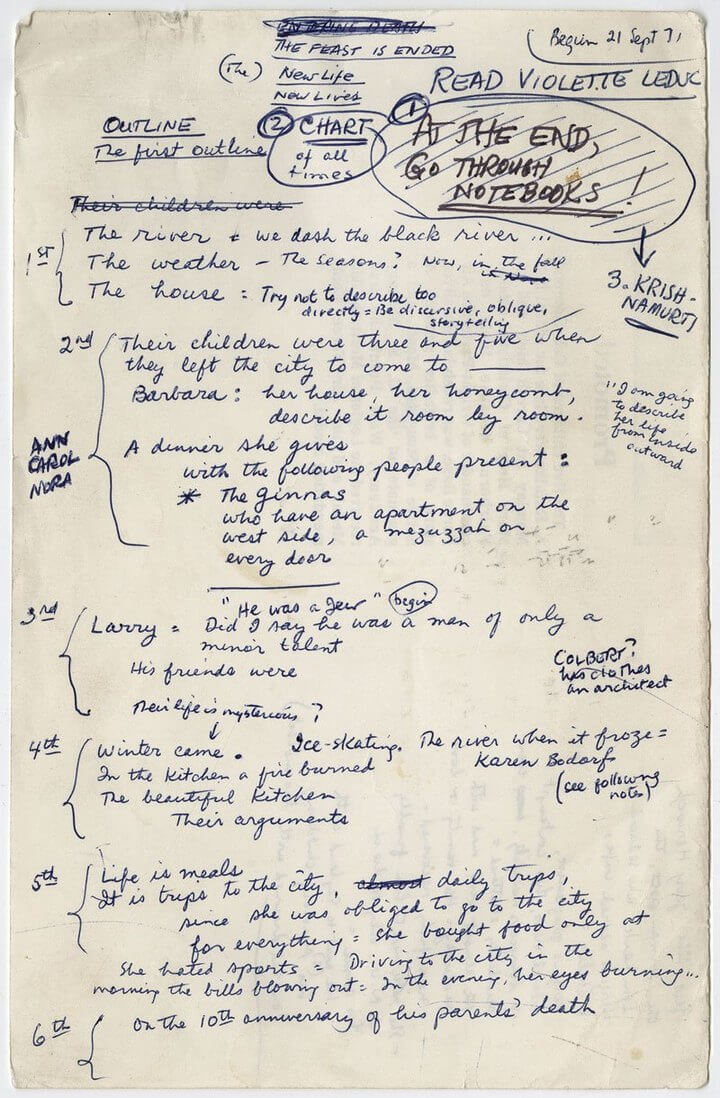 THE FEAST IS ENDED
(The) New Life
New Lives
Begun 21 Sept 71
READ VIOLETTE LEDUC
OUTLINE
The first outline
② CHART
of all
times
① AT THE END,
GO THROUGH
NOTEBOOKS!
3. KRISH-
NAMURTI
Their children were
1st
The river = we dash the black river...
The weather - The seasons? Now, in the fall
The house : Try not to describe too
directly = Be discursive, oblique,
storytelling
2nd
Their children were three and five when
they left the city to come to ———
Barbara : her house, her honeycomb,
describe it room by room.
"I am going
to describe
her life
from inside
outward
ANN
CAROL
NORA
A dinner she gives
with the following people present :
* The Ginnas
who have an apartment on the
west side, a mezuzzah on
every door
3rd
"He was a Jew" begin
Larry = Did I say he was a man of only a
minor talent
His friends were
COLBERT?
has clothes
an architect
Their life is mysterious?
4th
Winter came. Ice-skating. The river when it froze =
Karen Bodorfs
In the kitchen a fire burned
(see following
notes)
The beautiful kitchen
Their arguments
5th
Life is meals
It is trips to the city, almost daily trips,
since she was obliged to go to the city
for everything = she bought food only at
She hated sports = Driving to the city in the
morning the bills blowing out = In the evening, her eyes burning...
6th
On the 10th anniversary of his parents' death